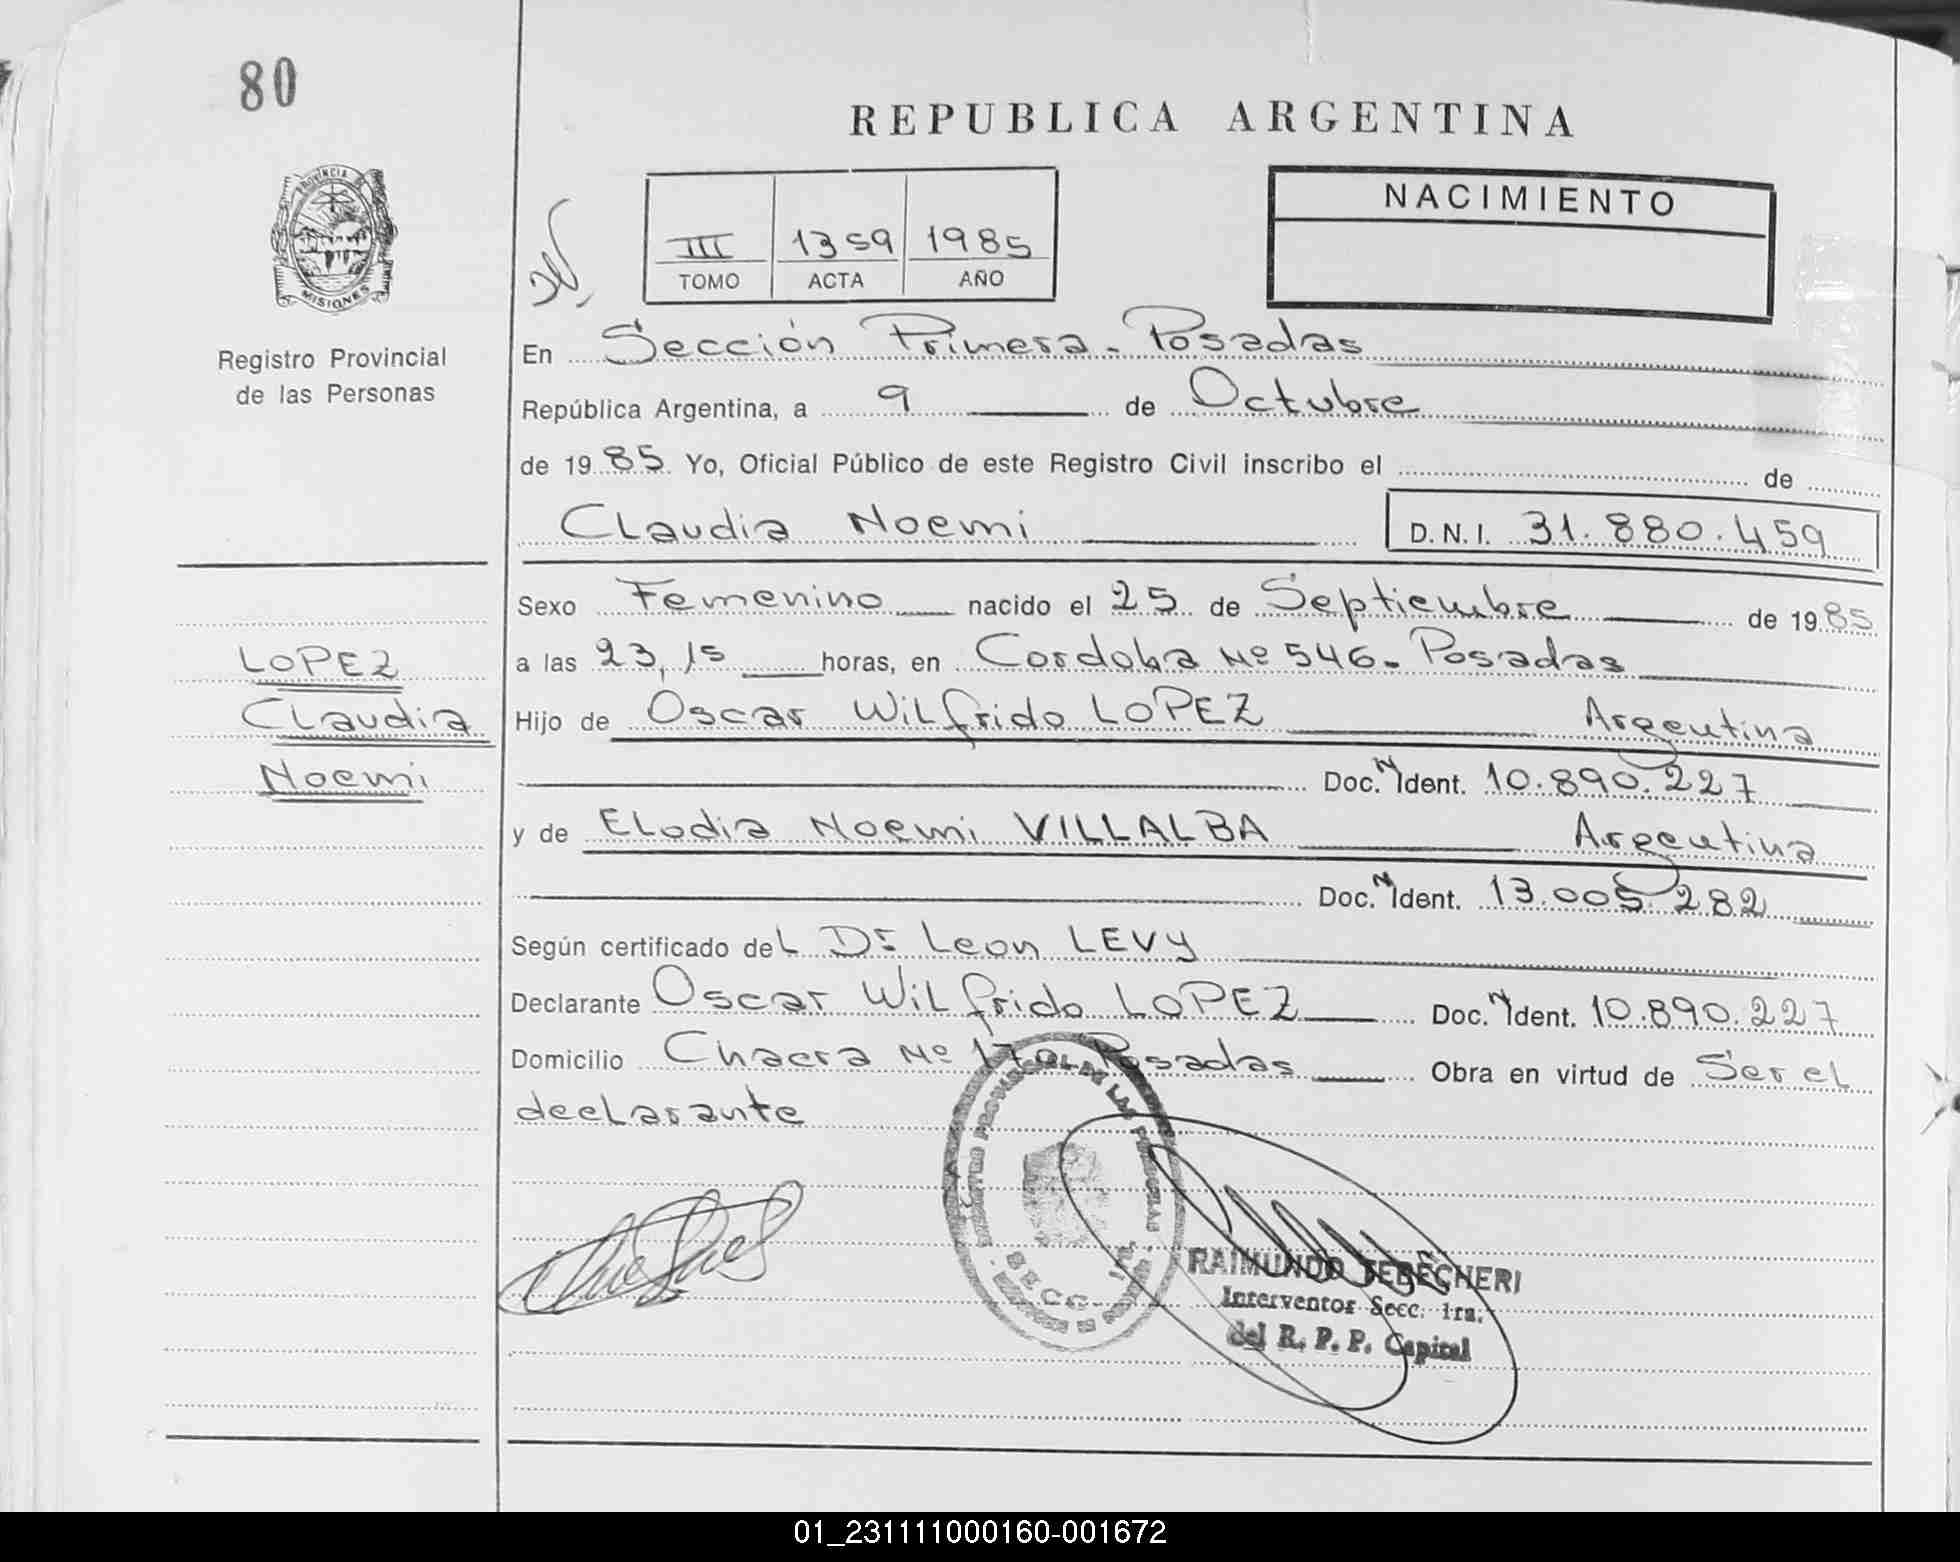 80
REPUBLICA ARGENTINA
PROVINCIA DE
MISIONES
Registro Provincial
de las Personas
III 1359 1985
TOMO ACTA AÑO
NACIMIENTO
En Sección Primera - Posadas
República Argentina, a 9 de Octubre
de 1985 Yo, Oficial Público de este Registro Civil inscribo el de
Claudia Noemi D.N.I. 31.880.459
Sexo Femenino nacido el 25 de Septiembre de 1985
a las 23,15 horas, en Cordoba Nº 546. Posadas
Hijo de Oscar Wilfrido LOPEZ Argentina
Doc. N Ident. 10.890.227
y de Elodia Noemi VILLALBA Argentina
Doc. N Ident. 13.005.282
Según certificado del Dr Leon LEVY
Declarante Oscar Wilfrido LOPEZ Doc. N Ident. 10.890.227
Domicilio Chacra Nº 170 Posadas Obra en virtud de Ser el
declarante
LOPEZ
Claudia
Noemi
REGISTRO PROVINCIAL DE LAS PERSONAS
SECC. 1ra.
RAIMUNDO TEBECHERI
Interventor Secc. 1ra.
del R. P. P. Capital
01_231111000160-001672